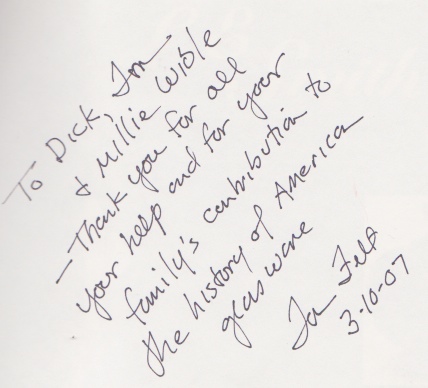 To Dick, Tom
& Millie Wible
— Thank you for all
your help and for your
family's contribution to
the history of American
glassware
Tom Felt
3-10-07